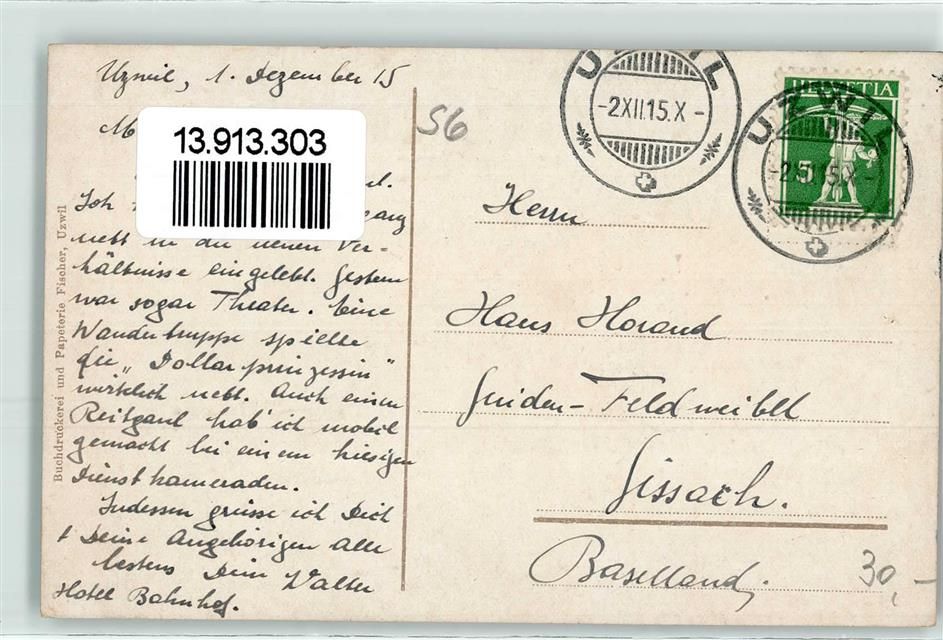 Uzwil, 1. Dezember 15
M
13.913.303
Ich
nett in die neuen Ver-
hältnisse eingelebt. Gestern
war sogar Theater. Eine
Wandertruppe spielte
die „Dollarprinzessin"
wirklich nett. Auch einen
Reitgaul hab' ich mobil
gemacht bei einem hiesigen
Dienstkameraden.
Indessen grüsse ich Dich
+ Deine Angehörigen alle
bestens Dein Walter
Hotel Bahnhof.
Buchdruckerei und Papeterie Fischer, Uzwil
S6
UZWIL
-2XII.15.X-
HELVETIA
5
UZWIL
-2XII.15.X-
Herrn
Hans Horand
Guiden-Feldweibel
Sissach.
Baselland,
30,-